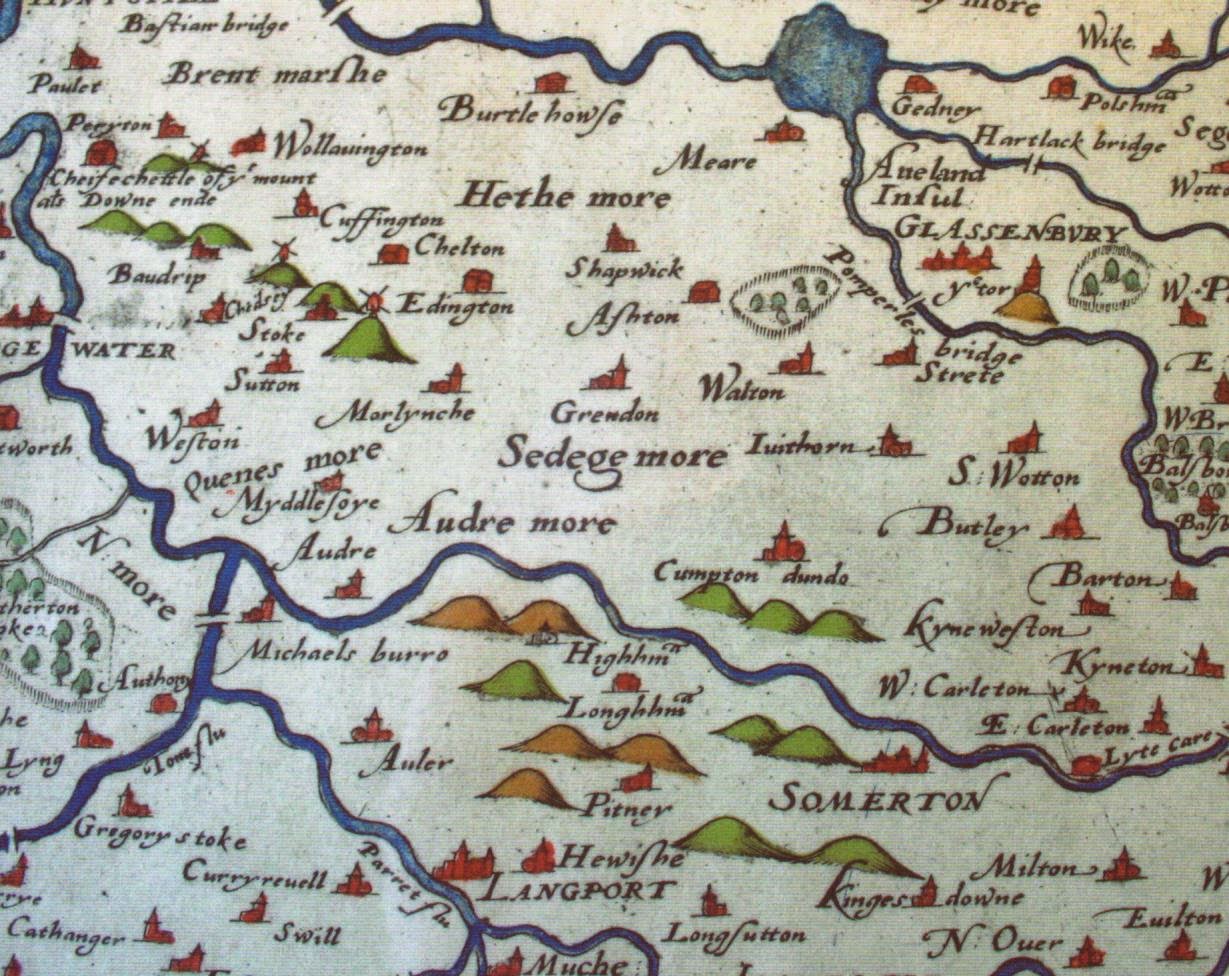 Bastian bridge
more
Wike
Paulet
Brent marſhe
Burtle howſe
Gedney
Polshm
Peryton
Wollavington
Meare
Hartlack bridge
Cheifechettle of yᵉ mount
als Downe ende
Hethe more
Aueland
Inſul
Cuffington
Chelton
GLASSENBVRY
Baudrip
Shapwick
Pomperles
bridge
yᵉ tor
Chidsey
Edington
Aſhton
Stoke
WATER
Sutton
Strete
Morlynche
Grendon
Walton
Weston
Sedege more
Iuithorn
S. Wotton
Quenes more
Myddleſoye
Audre more
Butley
N. more
Audre
Cumpton dundo
Barton
Kyneweſton
Michaels burro
Highhm
Kyneton
W: Carleton
Authony
Longhhm
E: Carleton
Lyte care
Lyng
Tone flu
Auler
Pitney
SOMERTON
Gregory stoke
Parret flu
Hewiſhe
Curry reuell
LANGPORT
Milton
Kingesdowne
Cathanger
Swill
Longſutton
N. Ouer
Euilton
Muche